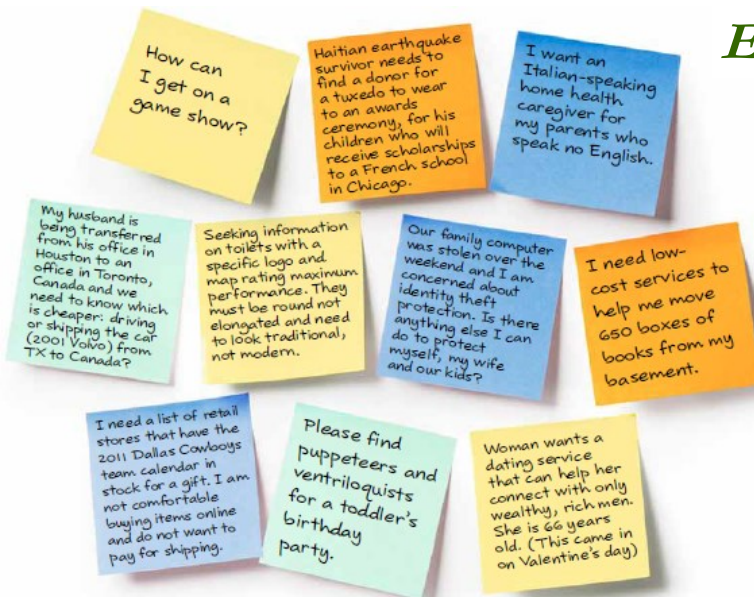 E
How can
I get on a
game show?
Haitian earthquake
survivor needs to
find a donor for
a tuxedo to wear
to an awards
ceremony, for his
children who will
receive scholarships
to a French school
in Chicago.
I want an
Italian-speaking
home health
caregiver for
my parents who
speak no English.
My husband is
being transferred
from his office in
Houston to an
office in Toronto,
Canada and we
need to know which
is cheaper: driving
or shipping the car
(2001 Volvo) from
TX to Canada?
Seeking information
on toilets with a
specific logo and
map rating maximum
performance. They
must be round not
elongated and need
to look traditional,
not modern.
Our family computer
was stolen over the
weekend and I am
concerned about
identity theft
protection. Is there
anything else I can
do to protect
myself, my wife
and our kids?
I need low-
cost services to
help me move
650 boxes of
books from my
basement.
I need a list of retail
stores that have the
2011 Dallas Cowboys
team calendar in
stock for a gift. I am
not comfortable
buying items online
and do not want to
pay for shipping.
Please find
puppeteers and
ventriloquists
for a toddler's
birthday
party.
Woman wants a
dating service
that can help her
connect with only
wealthy, rich men.
She is 66 years
old. (This came in
on Valentine's day)